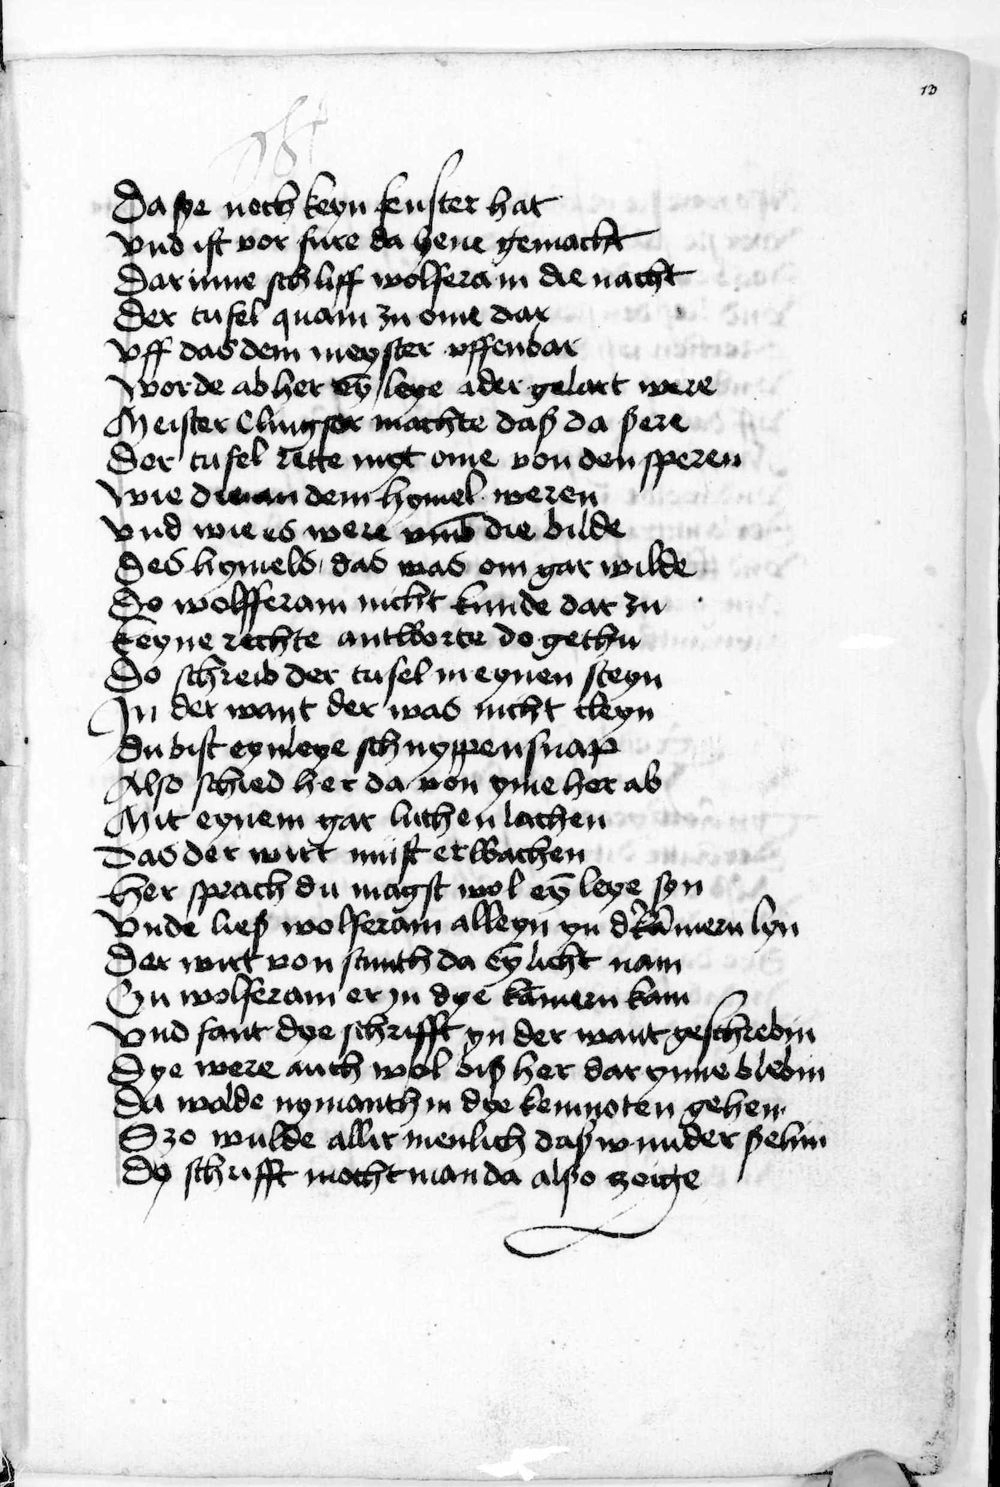 13
Da sye noch keyn fenster hat
vnd ist vor fure da hene gemacht
Dar inne schliff wolferam die nacht
Der tufel quam zu ome dar
vff das dem meyster vffenbar
worde ab her eȳ leye ader gelart were
Meister Clingsor machte daß da ßere
Der tufel rette myt ome von den speren
wie die an dem hymel weren
vnd wie es were vmb die bilde
Des hymels / das was om gar wilde
Do wolfferam nicht kunde dar zu
keyne rechte antworte do gethu
Do schreib der tufel in eynen steyn
In der want der was nicht cleyn
du bist eyn leye schnyppensnap
Also schied her da von yme her ab
Mit eynem gar luthen lachen
Das der wirt must erwachen
her sprach du magst wol eȳ leye syn
vnde ließ wolferam alleyn yn d' kāmern lyn
Der wirt von stunth da eȳ licht nam
Czu wolferam er in dye kāmern kam
vnd fant dye schrifft yn der want geschrebin
Dye were auch wol biß her dar ynne blebin
Da wolde nymanth in dye kemnoten gehen
Szo wulde allir menlich daß wunder ßehin
Dy schrifft mocht man da alßo zeige